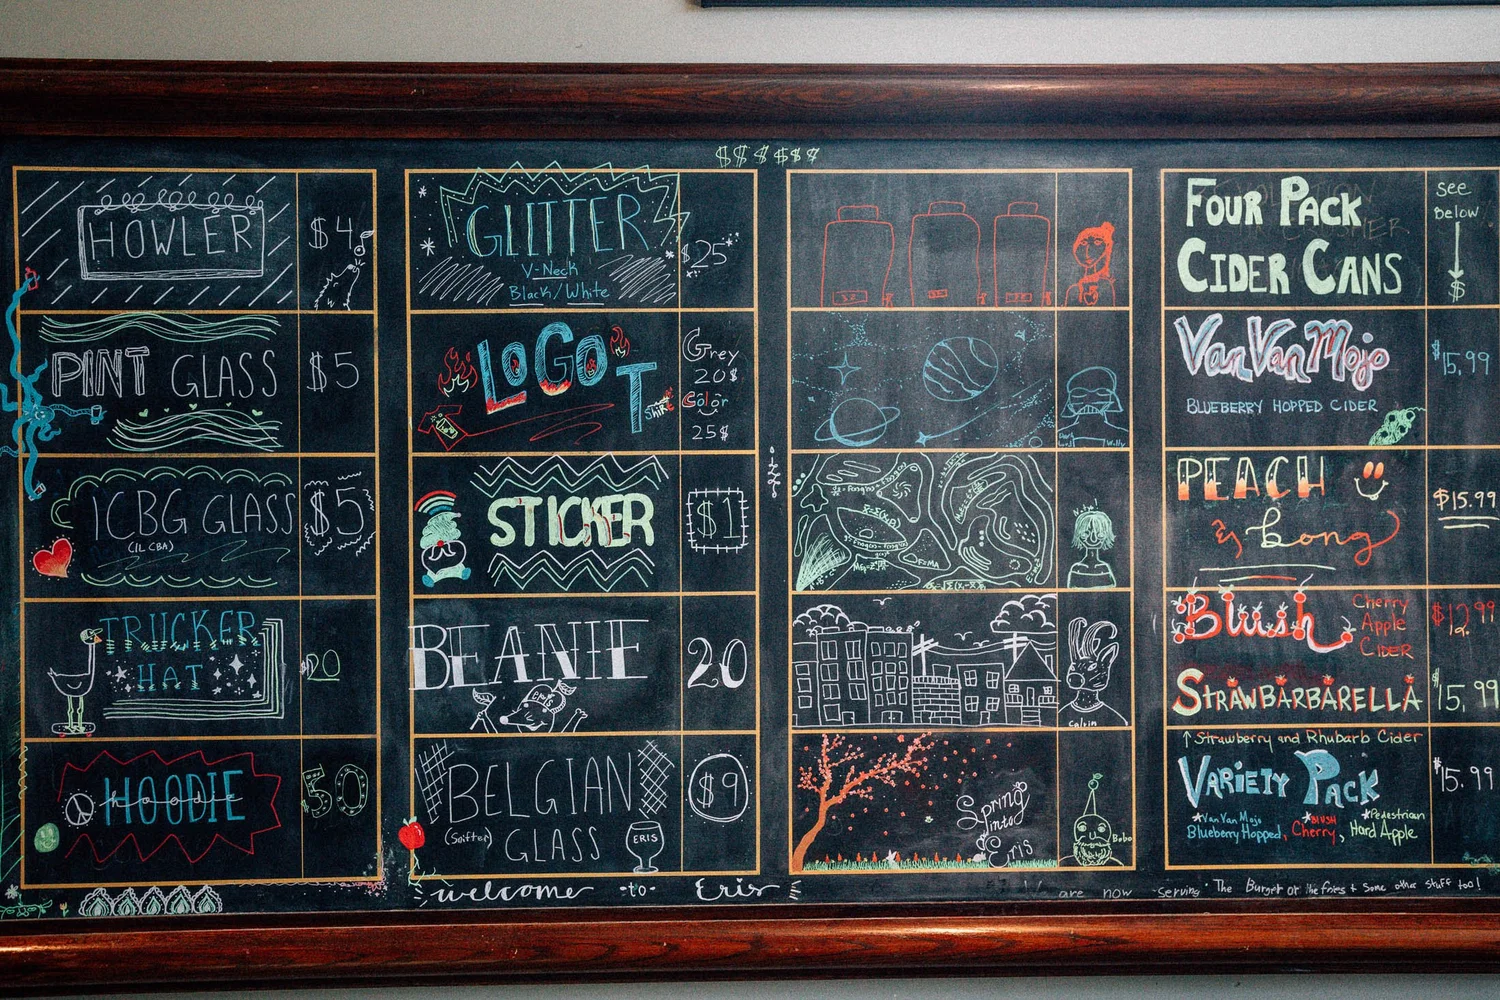 $$$$$$
HOWLER
$4
PINT GLASS
$5
ICBG GLASS
(IL CBA)
$5
TRUCKER
HAT
$20
HOODIE
hoodie
50
GLITTER
V-Neck
Black/White
$25
LOGO
T
Shirt
Grey
20$
Color
25$
STICKER
$1
BEANIE
20
BELGIAN
(Snifter)
GLASS
ERIS
$9
Calvin
Spring
Into
Eris
Bobo
FOUR PACK
CIDER CANS
See
Below
$
Van Van Mojo
BLUEBERRY HOPPED CIDER
$15.99
PEACH
& Kong
$15.99
Blush
Cherry
Apple
CIDER
$12.99
STRAWBARBARELLA
$15.99
↑ Strawberry and Rhubarb Cider
VARIETY PACK
$15.99
*Van Van Mojo
Blueberry Hopped,
*BLUSH
Cherry,
*Pedestrian
Hard Apple
welcome -to- Eris
We are now serving The Burger or the fries + some other stuff too!